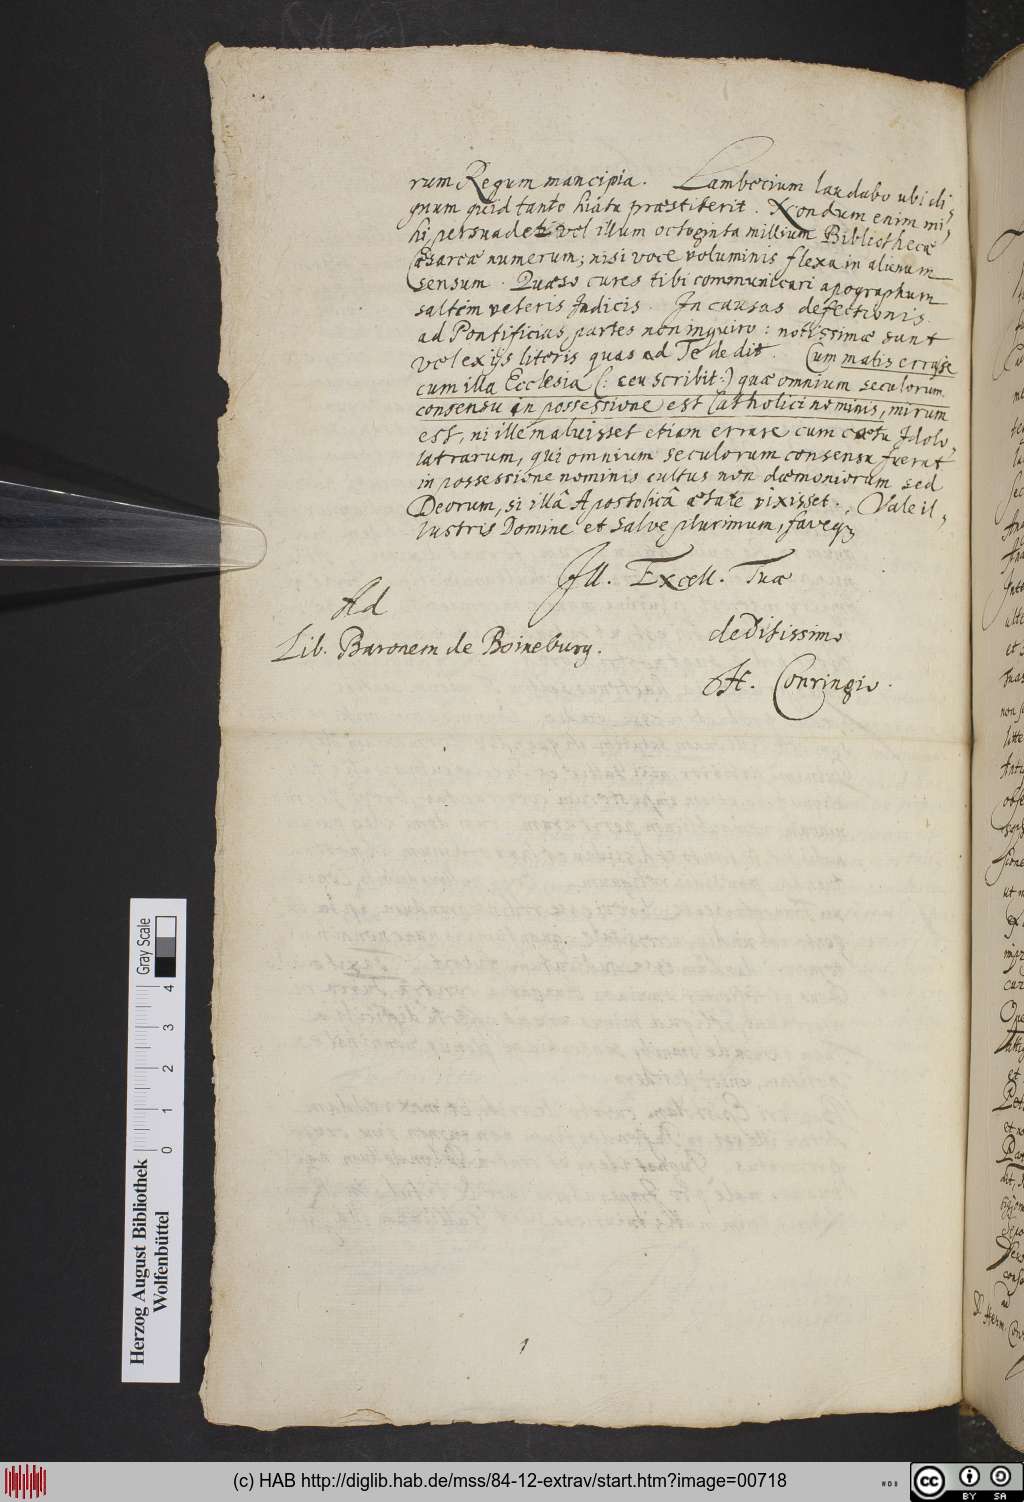 rum Regum mancipia. Lambecium laudabo ubi di,
gnum quid tanto hiatu præstiterit. Nondum enim mi,
hi persuadet vel illum octoginta millium Bibliothecæ
Cæsareæ numerum; nisi voce voluminis flexa in alienum
sensum. Quæso cures tibi communicari apographum
saltem veteris Indicis. In causas defectionis
ad Pontificias partes non inquiro: notissimæ sunt
vel ex ijs literis quas ad Te dedit. Cum mavis errasse
cum illa Ecclesia (: ceu scribit :) quæ omnium seculorum
consensu in possessione est Catholici nominis, mirum
est, ni ille maluisset etiam errare cum cœtu Idolo,
latrarum, qui omnium seculorum consensu fuerat
in possessione nominis cultus non dæmoniorum sed
Deorum, si illâ Apostolicâ ætate vixisset. Vale il,
lustris Domine et salve plurimum, faveq3
Ill. Excell. Tuæ
Ad
deditissimo
Lib. Baronem de Boineburg.
H. Conringio.
1
Gray Scale
0 1 2 3 4
Herzog August Bibliothek
Wolfenbüttel
(c) HAB http://diglib.hab.de/mss/84-12-extrav/start.htm?image=00718
cc BY SA